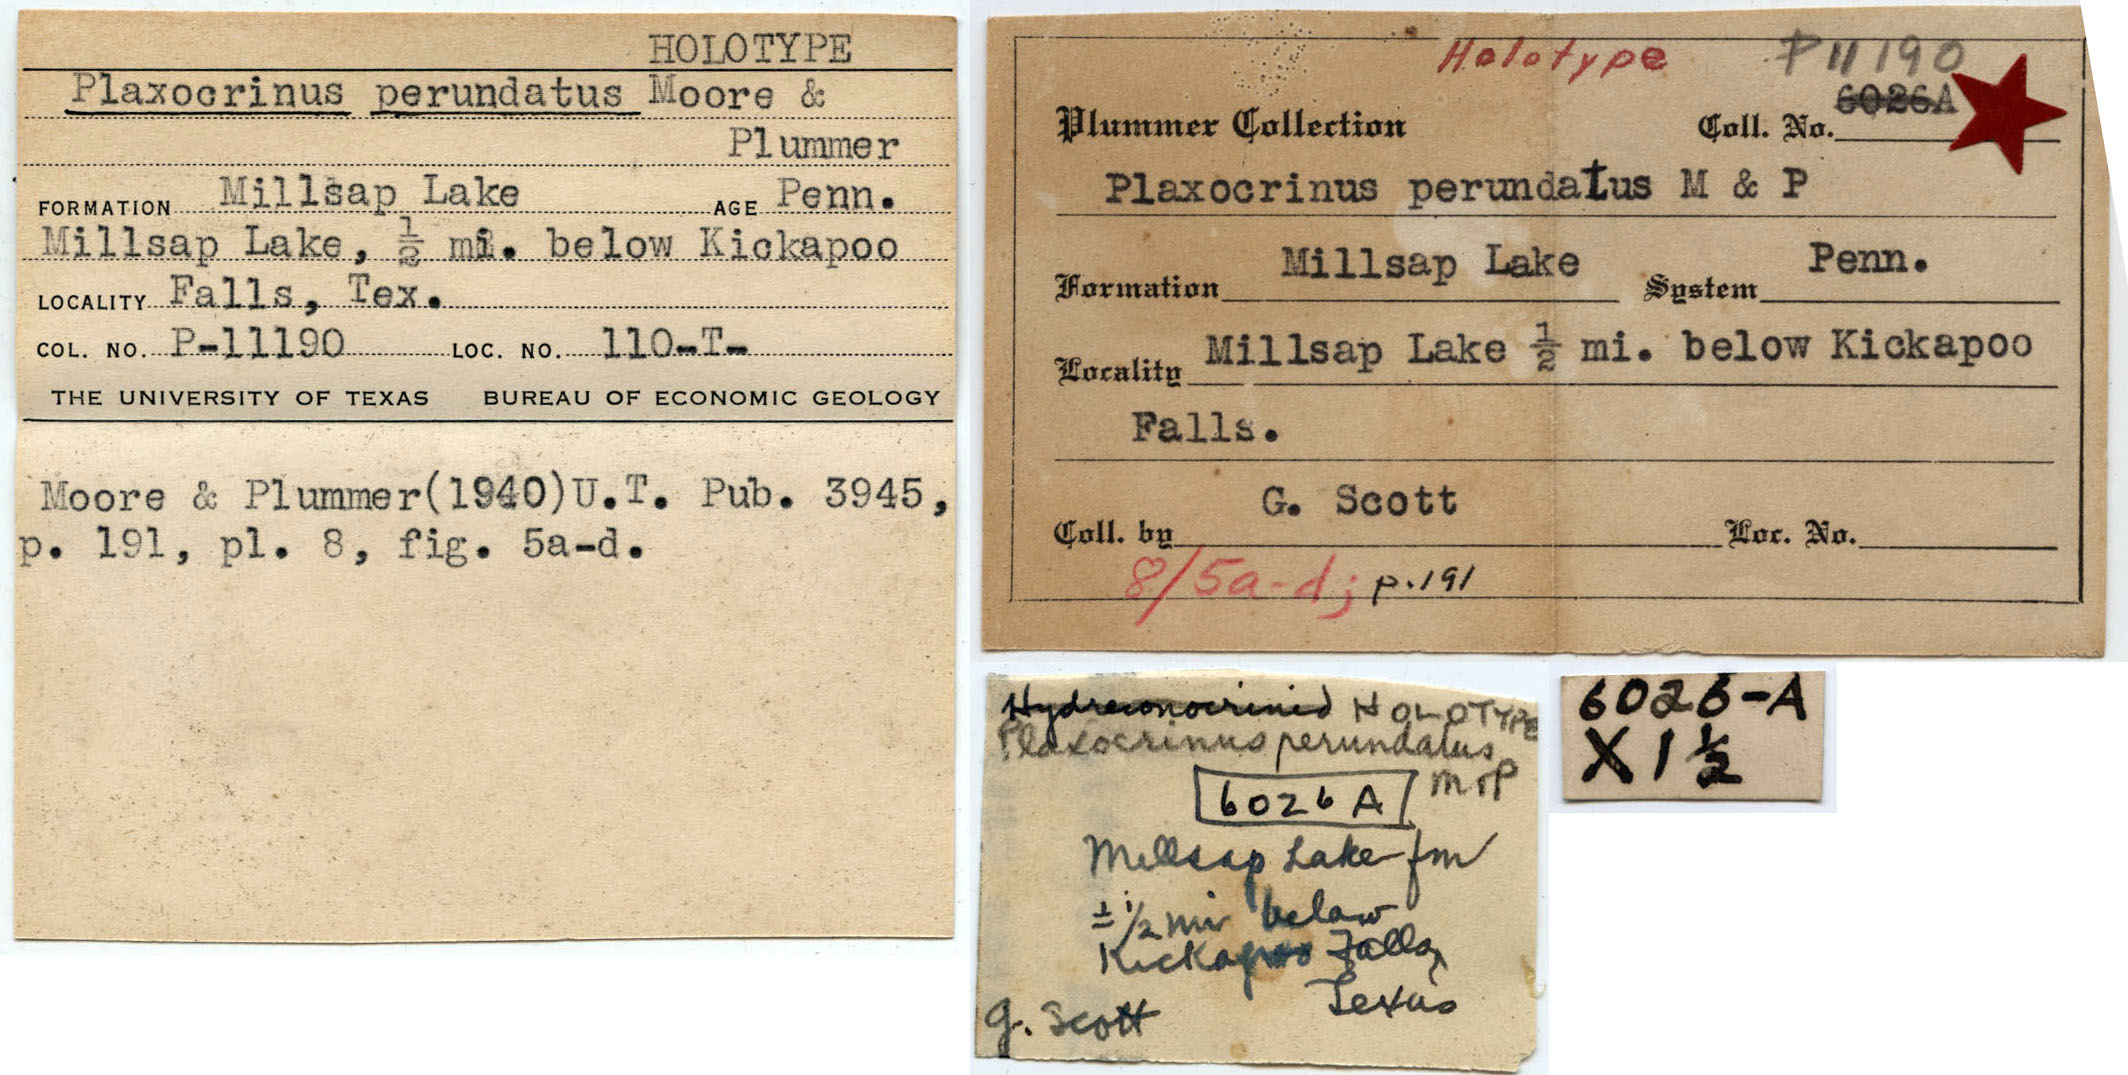 HOLOTYPE
Plaxocrinus perundatus Moore &
Plummer
FORMATION Millsap Lake AGE Penn.
Millsap Lake, ½ mi. below Kickapoo
LOCALITY Falls, Tex.
COL. NO. P-11190 LOC. NO. 110-T-
THE UNIVERSITY OF TEXAS BUREAU OF ECONOMIC GEOLOGY
Moore & Plummer(1940)U.T. Pub. 3945,
p. 191, pl. 8, fig. 5a-d.
Holotype P11190
6026A
Plummer Collection Coll. No.
Plaxocrinus perundatus M & P
Formation Millsap Lake System Penn.
Locality Millsap Lake ½ mi. below Kickapoo
Falls.
Coll. by G. Scott Loc. No.
8/5a-d; p.191
Hydreionocrinid HOLOTYPE
Plaxocrinus perundatus
M & P
6026 A
Millsap Lake fm
± 1/2 mi below
Kickapoo Falls,
Texas
G. Scott
6026-A
X 1 ½